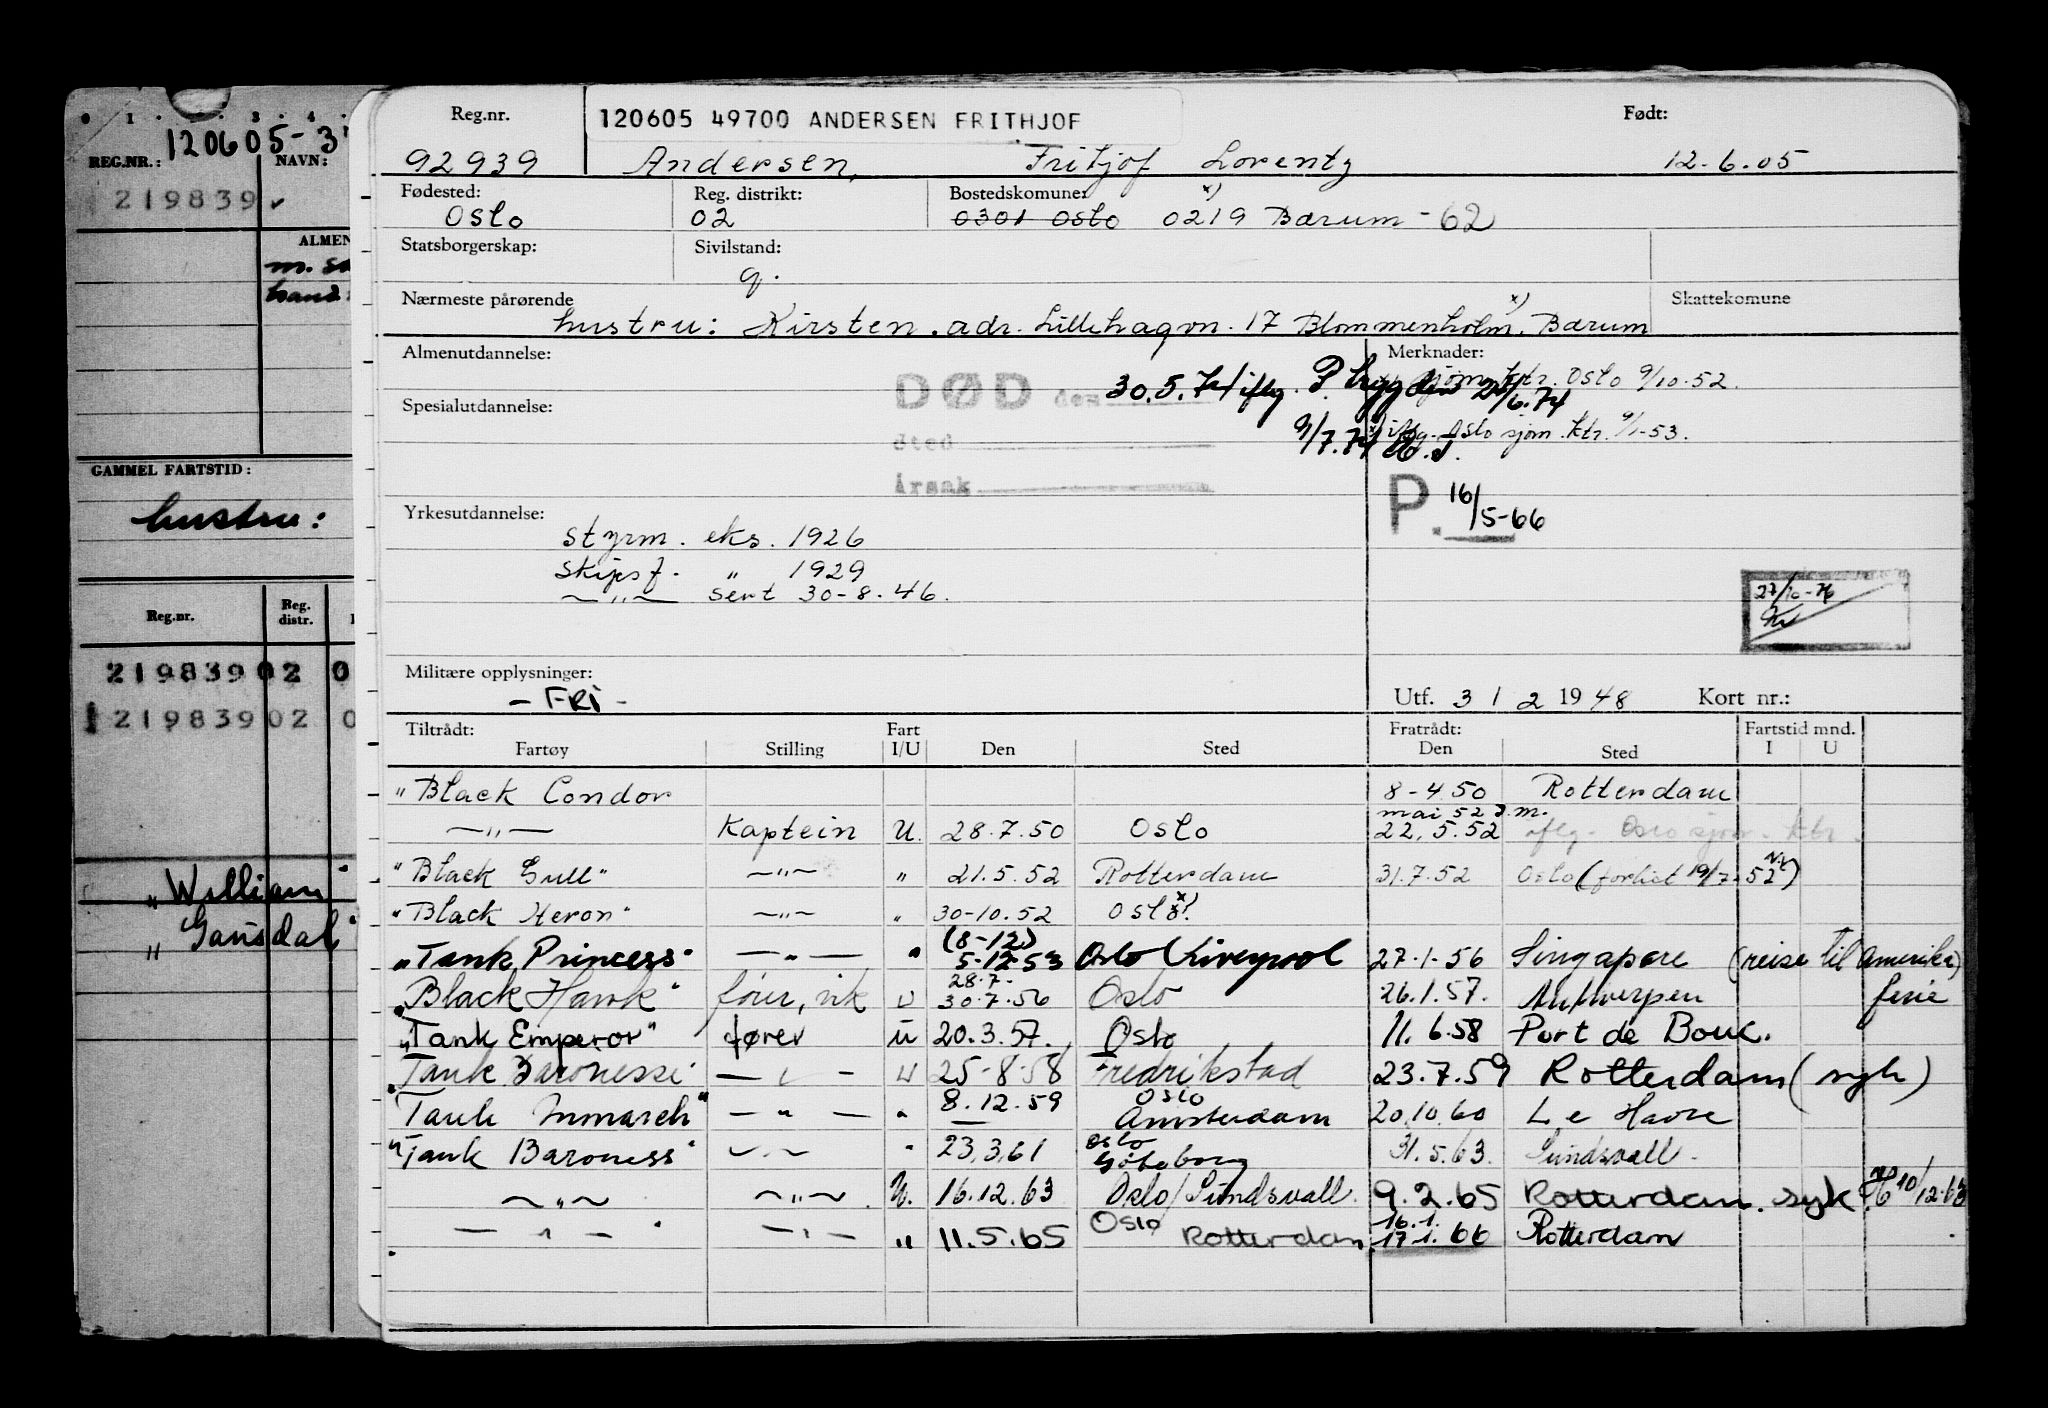 120605-3
REG.NR.: NAVN:
219839
ALMEN
m. s
GAMMEL FARTSTID:
hustru:
Reg.nr. Reg. distr.
219839 02 0
219839 02 0
"William
"Gausdal"
Reg.nr. 120605 49700 ANDERSEN FRITHJOF Født:
92939 Andersen, Fritjof Lorentz 12-6.05
Fødested: Reg. distrikt: Bostedskommune: x)
Oslo 02 0301 Oslo 0219 Bærum -62
Statsborgerskap: Sivilstand:
g.
Nærmeste pårørende x) Skattekomune
hustru: Kirsten. adr. Lillehagvn. 17 Blommenholm, Bærum
Almenutdannelse: Merknader:
DØD den 30.5.74 iflg. P. Oslo 9/10.52.
Spesialutdannelse: /6.74
sted 9/7.74 iflg. Oslo sjøm. ktr. 9/1-53.
Årsak
P. 16/5-66
Yrkesutdannelse:
styrm. eks. 1926
skipsf. " 1929
—"— sert 30-8.46.
27/10-76
Militære opplysninger:
- FRI - Utf. 3 / 2 1948 Kort nr.:
Tiltrådt: Fart Fratrådt: Fartstid mnd.
Fartøy Stilling I/U Den Sted Den Sted I U
"Black Condor 8-4 50 Rotterdam
mai 52 d.m.
—"— Kaptein U. 28.7.50 Oslo 22,5.52 iflg. Oslo sjøm. ktr.
"Black Gull" —"— " 21.5.52 Rotterdam 31.7.52 Oslo (forlist 19/7-52)
"Black Heron" —"— " 30-10.52 Oslo x)
(8-12)
"Tank Princess" —"— " 5-12-53 Oslo/Liverpool 27-1-56 Singapore (reise til Amerika)
28.7-
"Black Hawk" fører, vik U 30.7.56 Oslo 26.1.57. Antwerpen ferie
"Tank Emperor" fører U 20.3.57. Oslo 11.6.58 Port de Bouc.
"Tank Baronesse" —"— U 25-8-58 Fredrikstad 23.7.59 Rotterdam (syk)
Oslo
"Tank Monarch" —"— " 8.12.59 Amsterdam 20.10.60 Le Havre
Oslo
"Tank Baroness" —"— " 23,3,61 Göteborg 31.5.63. Sundsvall.
—"— —"— U. 16.12.63 Oslo/Sundsvall. 9.2.65 Rotterdam. syk 10/12-63
16.1.
—"— —"— " 11.5.65 Oslo Rotterdam 17.1.66 Rotterdam